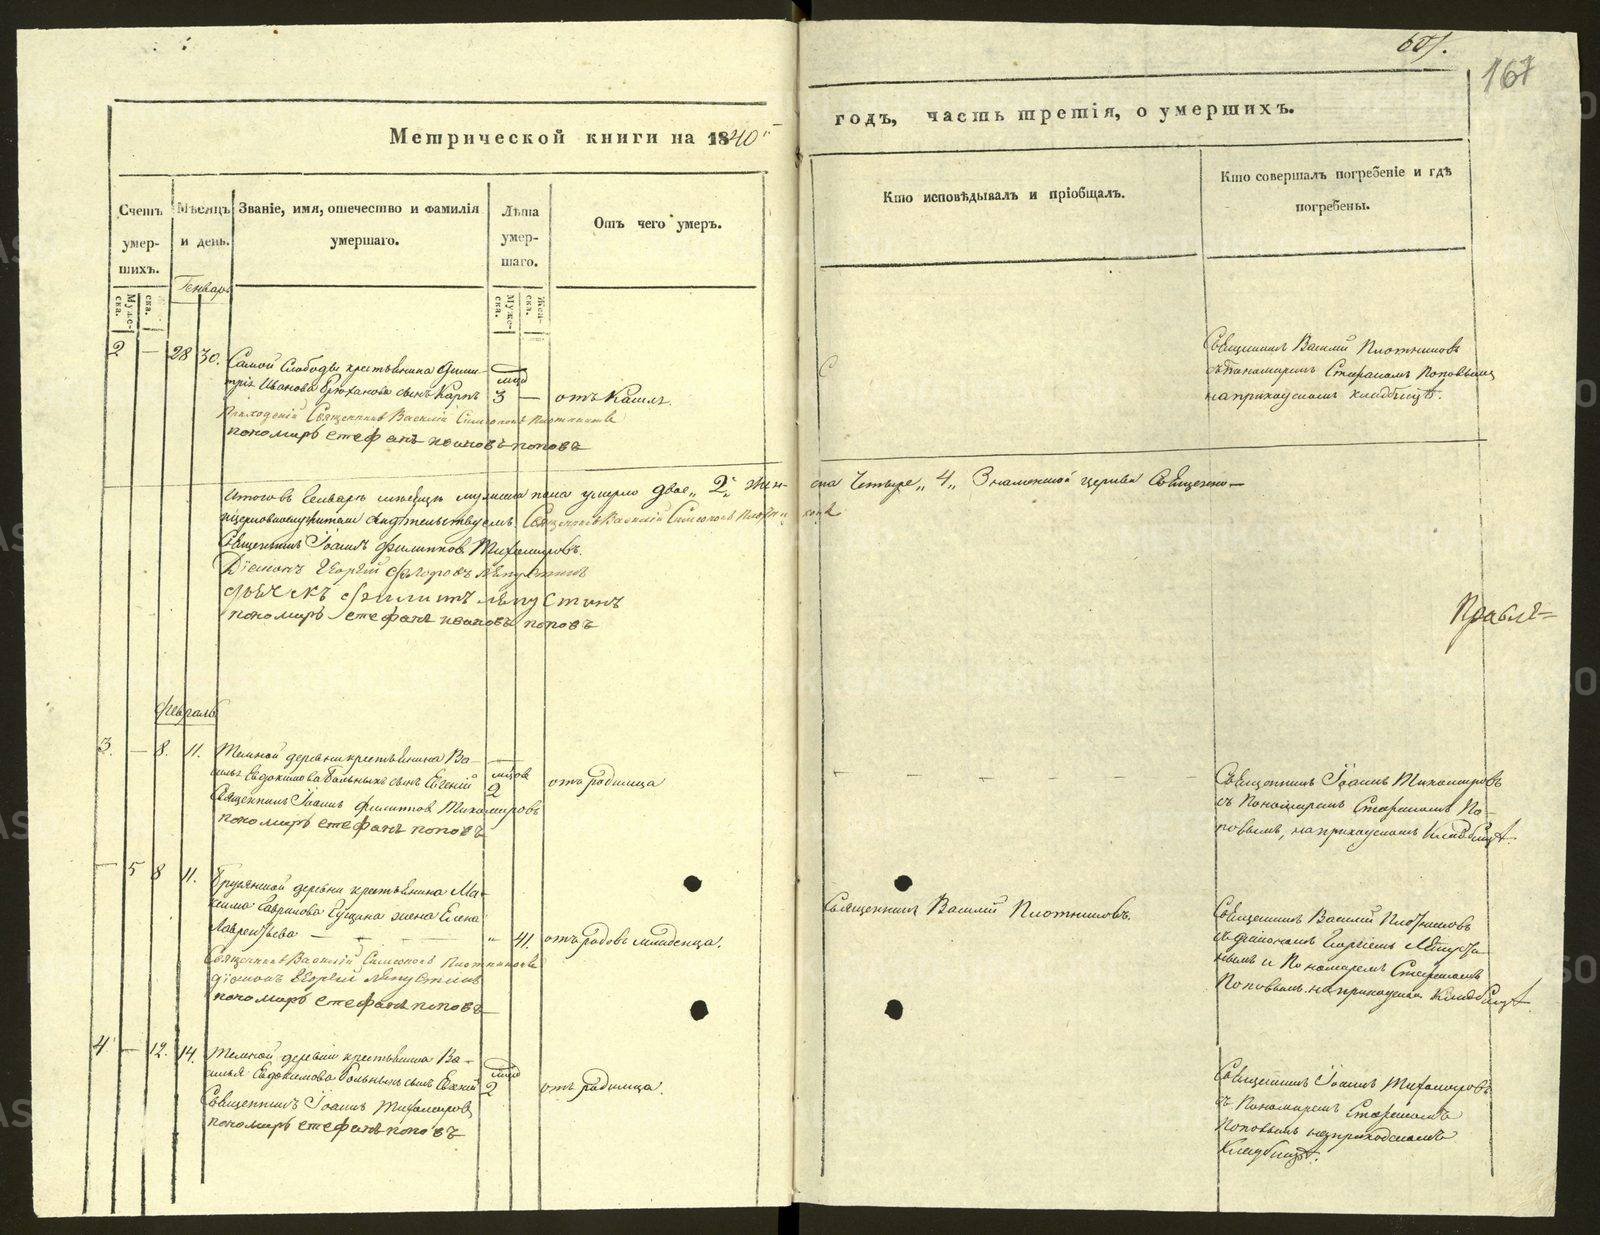 167
Метрической книги на 1840
годъ, часть третія, о умершихъ.
Счетъ умер-шихъ.
Мѣсяцъ и день.
Званіе, имя, отечество и фамилія умершаго.
Лѣта умер-шаго.
Отъ чего умеръ.
Кто исповѣдывалъ и пріобщалъ.
Кто совершалъ погребеніе и гдѣ погребены.
Генварь
Муже-ска.
ска.
Муже-ска.
Жен-ска.
2 — 28 30.
Самой Слободы крестьянина Дими-
трія Иванова сынъ Карпъ 3 — отъ Кашля
Священникъ Василий Симеоновъ Плотниковъ
пономарь стефанъ ивановъ поповъ
Священникъ Василій Плотниковъ
съ Пономаремъ Стефаномъ Поповымъ
на приходскомъ кладбищѣ.
Итого въ Генварѣ мѣсяцѣ мужеска пола умерло двое „2„ жен-
ска Четыре „4„ Знаменской церкви Священно-
церковнослужители свидѣтельствуемъ Священникъ Василий Симеоновъ Плотни-
ковъ
Священникъ Іоаннъ Филипповъ Тихомировъ.
Діаконъ Георгій Ляпустинъ
Дьячекъ Филипъ Ляпустинъ
пономарь стефанъ ивановъ поповъ
Февраль
3. — 8. 11.
Темной деревни крестьянина Ва-
силья Евдокимова Больныхъ сынъ Евгеній
мѣсяцов 2
отъ родимца
Священникъ Іоаннъ Филипповъ Тихомировъ
пономарь стефанъ поповъ
Священникъ Іоаннъ Тихомировъ
съ Пономаремъ Стефаномъ По-
повымъ, на приходскомъ Кладбищѣ.
— 5 8 11.
деревни крестьянина Ма-
ксима Гаврилова жена Елена
Лаврентьева — — — „ 41. отъ родовъ младенца.
Священникъ Василий Симеоновъ Плотниковъ
діаконъ Георгій Ляпустинъ
пономарь стефанъ поповъ
Священникъ Василій Плотниковъ.
Священникъ Василій Плотниковъ
съ діакономъ Георгіемъ Ляпусти-
нымъ и Пономаремъ Стефаномъ
Поповымъ. на приходскомъ Кладбищѣ
4 — 12. 14.
Темной деревни крестьянина Ва-
силья Евдокимова Больныхъ сынъ
2
отъ родимца.
Священникъ Іоаннъ Тихомировъ
пономарь стефанъ поповъ
Священникъ Іоаннъ Тихомировъ
съ Пономаремъ Стефаномъ
Поповымъ на приходскомъ
Кладбищѣ.